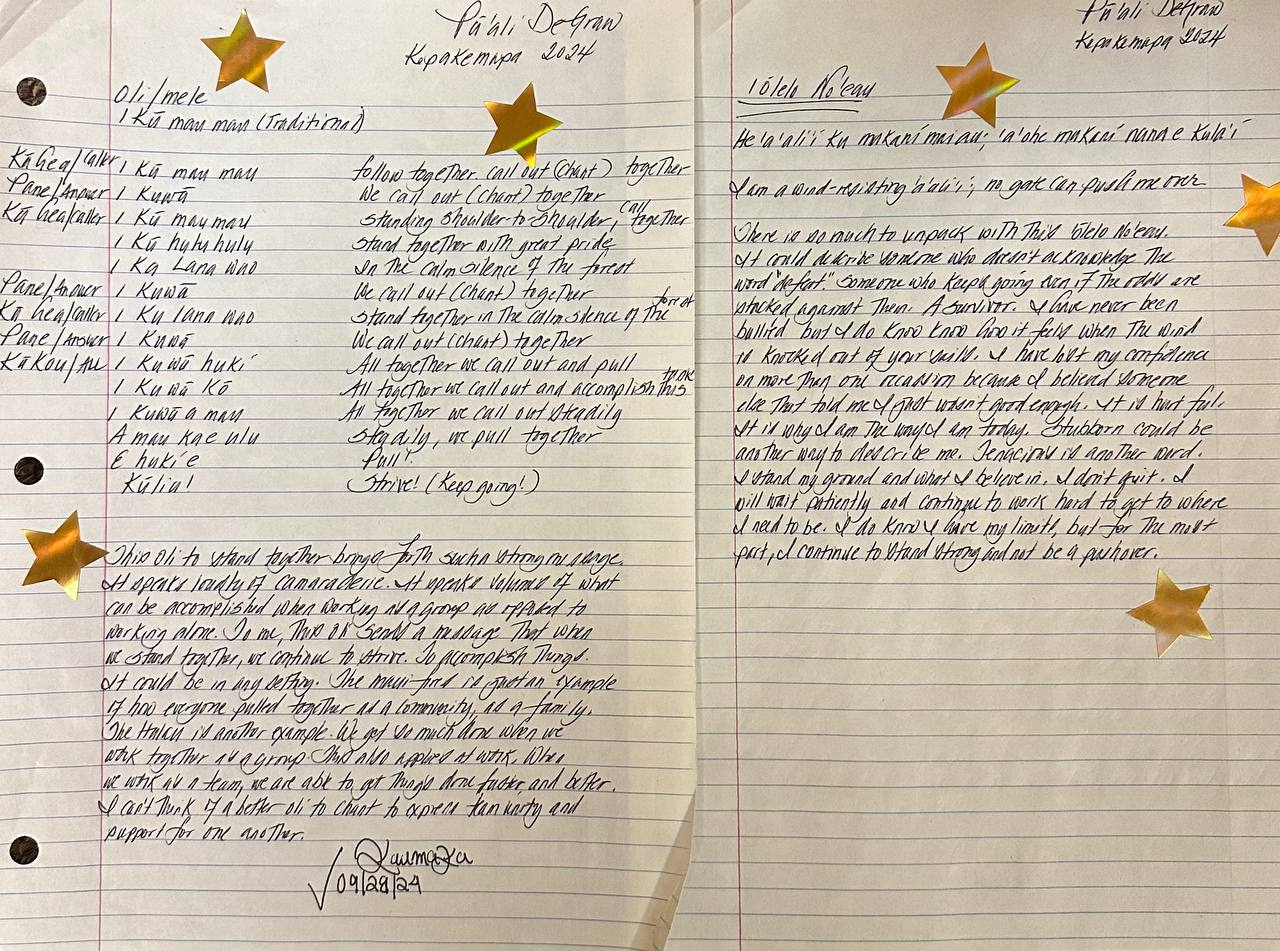 Pū'ali DeGraw
Kepakemapa 2024
Oli/mele
I Kū mau mau (Traditional)
Kāhea/caller I Kū mau mau follow together call out (chant) together
Pane/Answer I Kuwā We call out (chant) together
Kāhea/caller I Kū mau mau standing shoulder-to-shoulder, call together
I Kū huluhulu stand together with great pride
I Ka Lana wao In the calm silence of the forest
Pane/Answer I Kuwā We call out (chant) together
Kāhea/caller I Ku lana wao stand together in the calm silence of the forest
Pane/Answer I Kuwā We call out (chant) together
Kākou/All I Kuwā huki All together we call out and pull
I Kuwā Kō All together we call out and accomplish this task
I Kuwā a mau All together we call out steadily
A mau ka e ulu Steadily, we pull together
E huki e Pull!
Kūlia! Strive! (Keep going!)
This oli to stand together brings forth such a strong message.
It speaks loudly of camaraderie. It speaks volumes of what
can be accomplished when working as a group as opposed to
working alone. To me, this oli sends a message that when
we stand together, we continue to strive. To accomplish things.
It could be in any setting. The maui fires is just an example
of how everyone pulled together as a community, as a family.
The Halau is another example. We get so much done when we
work together as a group. This also applies at work. When
we work as a team, we are able to get things done faster and better.
I can't think of a better oli to chant to express team unity and
support for one another.
Kaumaka
09/28/24
Pū'ali DeGraw
Kepakemapa 2024
'Ōlelo No'eau
He 'a'ali'i ku makani mai au; 'a'ohe makani nana e kula'i
I am a wind-resisting 'a'ali'i; no gale can push me over
There is so much to unpack with this 'ōlelo No'eau.
It could describe someone who doesn't acknowledge the
word "defeat." Someone who keeps going even if the odds are
stacked against them. A survivor. I have never been
bullied but I do know know how it feels when the wind
is knocked out of your sails. I have lost my confidence
on more than one occassion because I believed someone
else that told me I just wasn't good enough. It is hurtful.
It is why I am the way I am today. Stubborn could be
another way to describe me. Tenacious is another word.
I stand my ground and what I believe in. I don't quit. I
will wait patiently and continue to work hard to get to where
I need to be. I do know I have my limits, but for the most
part, I continue to stand strong and not be a pushover.